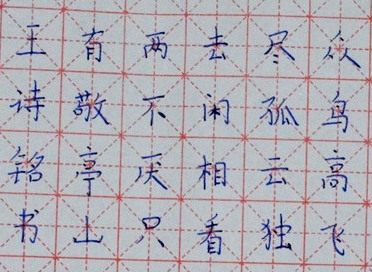 众鸟高飞
尽孤云独
去闲相看
两不厌只
有敬亭山
王诗铭书